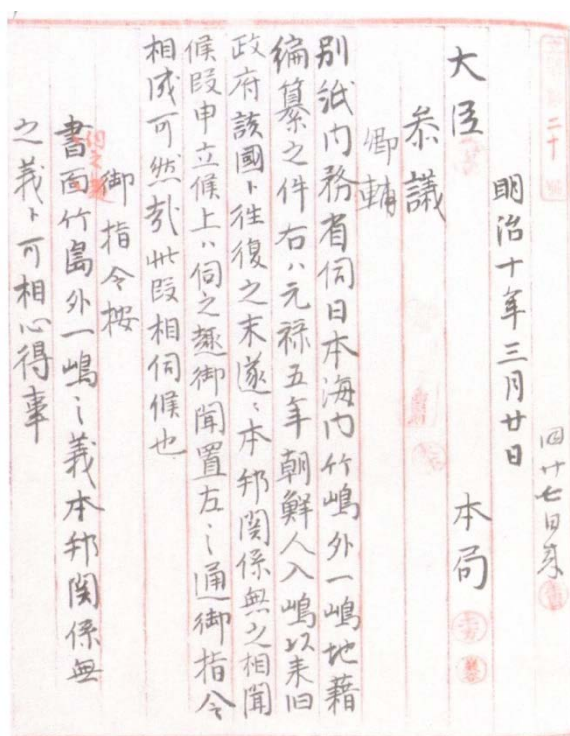 二十
明治十年三月廿日
大臣 本局
参議
卿輔
別紙内務省伺日本海内竹嶋外一嶋地籍
編纂之件右ハ元禄五年朝鮮人入嶋以来旧
政府該國ト往復之末遂ニ本邦関係無之相聞
候段申立候上ハ伺之趣御聞置左之通御指令
相成可然哉此段相伺候也
御指令按
伺之趣
書面竹島外一嶋之義本邦関係無
之義ト可相心得事